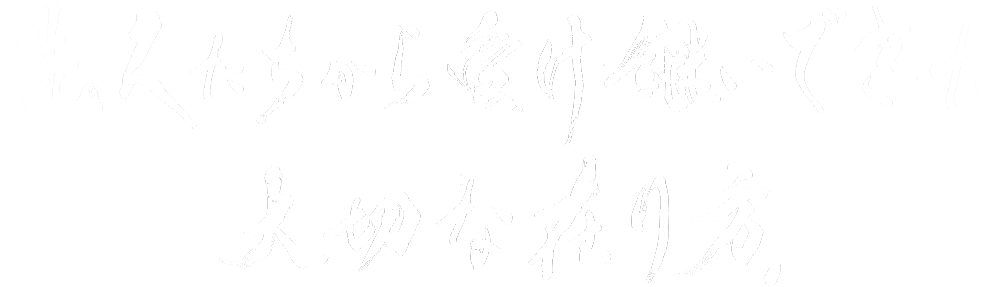 先人たちから受け継いできた
大切な在り方。